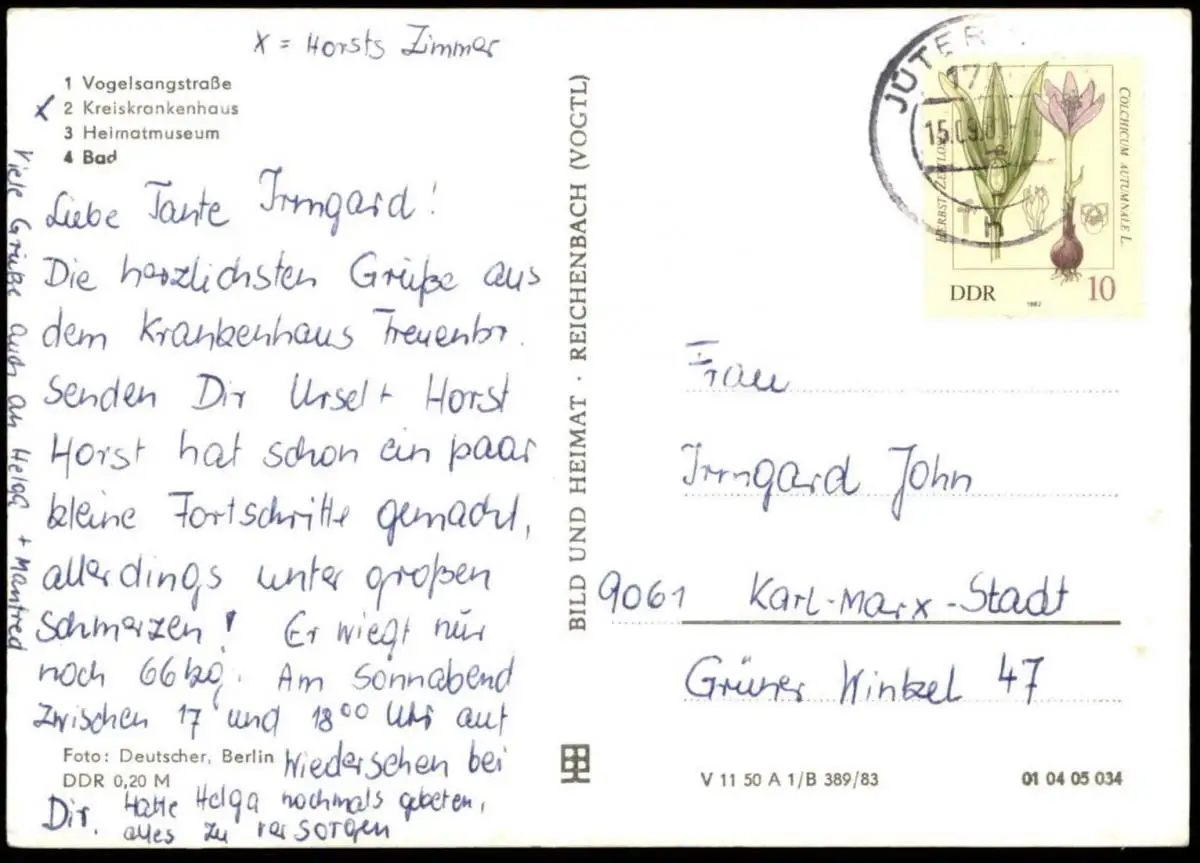 x = Horsts Zimmer
1 Vogelsangstraße
x 2 Kreiskrankenhaus
3 Heimatmuseum
4 Bad
Liebe Tante Irmgard!
Die herzlichsten Grüße aus
dem Krankenhaus Treuenbr.
senden Dir Ursel + Horst
Horst hat schon ein paar
kleine Fortschritte gemacht,
allerdings unter großen
Schmerzen! Er wiegt nur
noch 66 kg. Am Sonnabend
zwischen 17 und 18 00 Uhr auf
Wiedersehen bei
Dir. Hatte Helga nochmals gebeten,
alles zu versorgen
Viele Grüße auch an Helga + Manfred
Foto: Deutscher, Berlin
DDR 0,20 M
BILD UND HEIMAT · REICHENBACH (VOGTL)
JÜTER
17
15.09.8
HERBSTZEITLOSE
COLCHICUM AUTUMNALE L.
DDR
1982
10
Frau
Irmgard John
9061 Karl-Marx-Stadt
Grüner Winkel 47
V 11 50 A 1/B 389/83
01 04 05 034